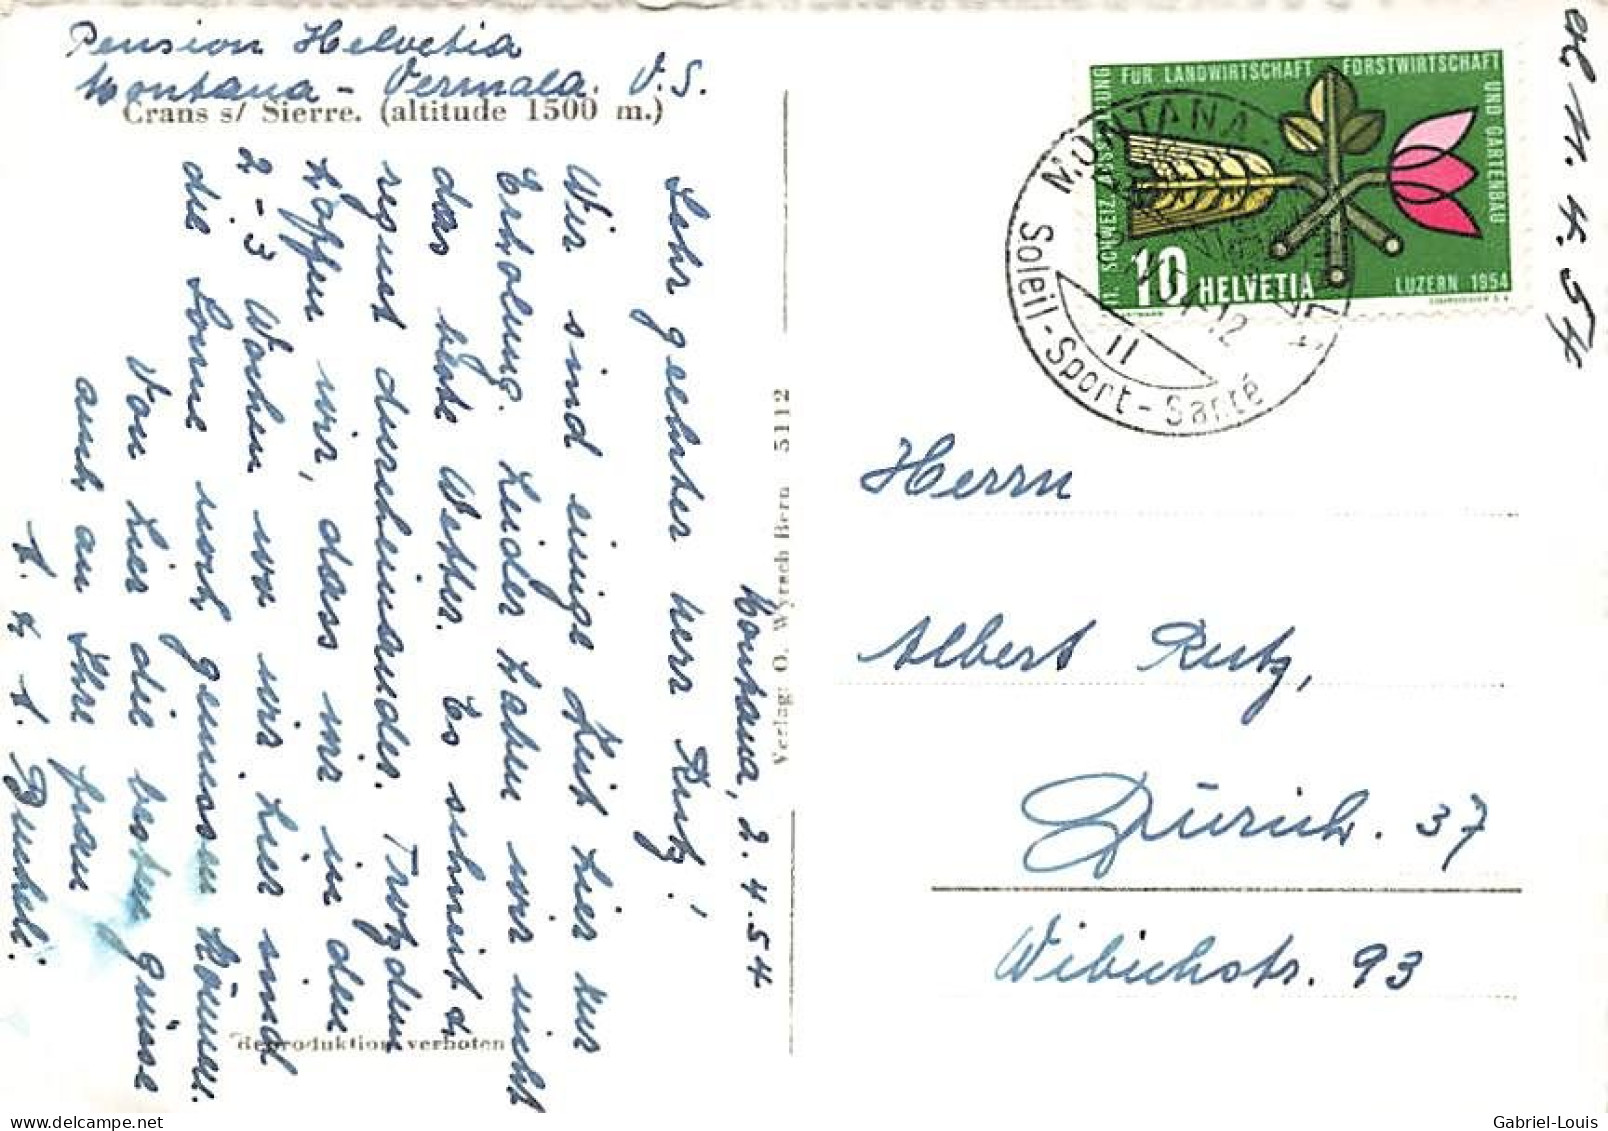 Pension Helvetia
Montana - Vermala. V.S.
Crans s/ Sierre. (altitude 1500 m.)
Montana, 2.4.54
Sehr geehrter Herr Rutz!
Wir sind einige Zeit hier zur
Erholung. Leider haben wir nicht
das gute Wetter. Es schneit &
regnet durcheinander. Trotzdem
hoffen wir, dass wir in den
2-3 Wochen wo wir hier sind
die Sonne noch geniessen können.
Von hier die besten Grüsse
auch an Ihre Frau
A. Bucheli.
Verlag: O. Wyrsch Bern 5112
Reproduktion verboten
11. SCHWEIZ. AUSSTELLUNG FÜR LANDWIRTSCHAFT FORSTWIRTSCHAFT UND GARTENBAU
10 HELVETIA
LUZERN 1954
COURVOISIER S.A.
MONTANA
Soleil-Sport-Santé
4.54
Herrn
Albert Rutz,
Zürich. 37
Wibichstr. 93
Gabriel-Louis